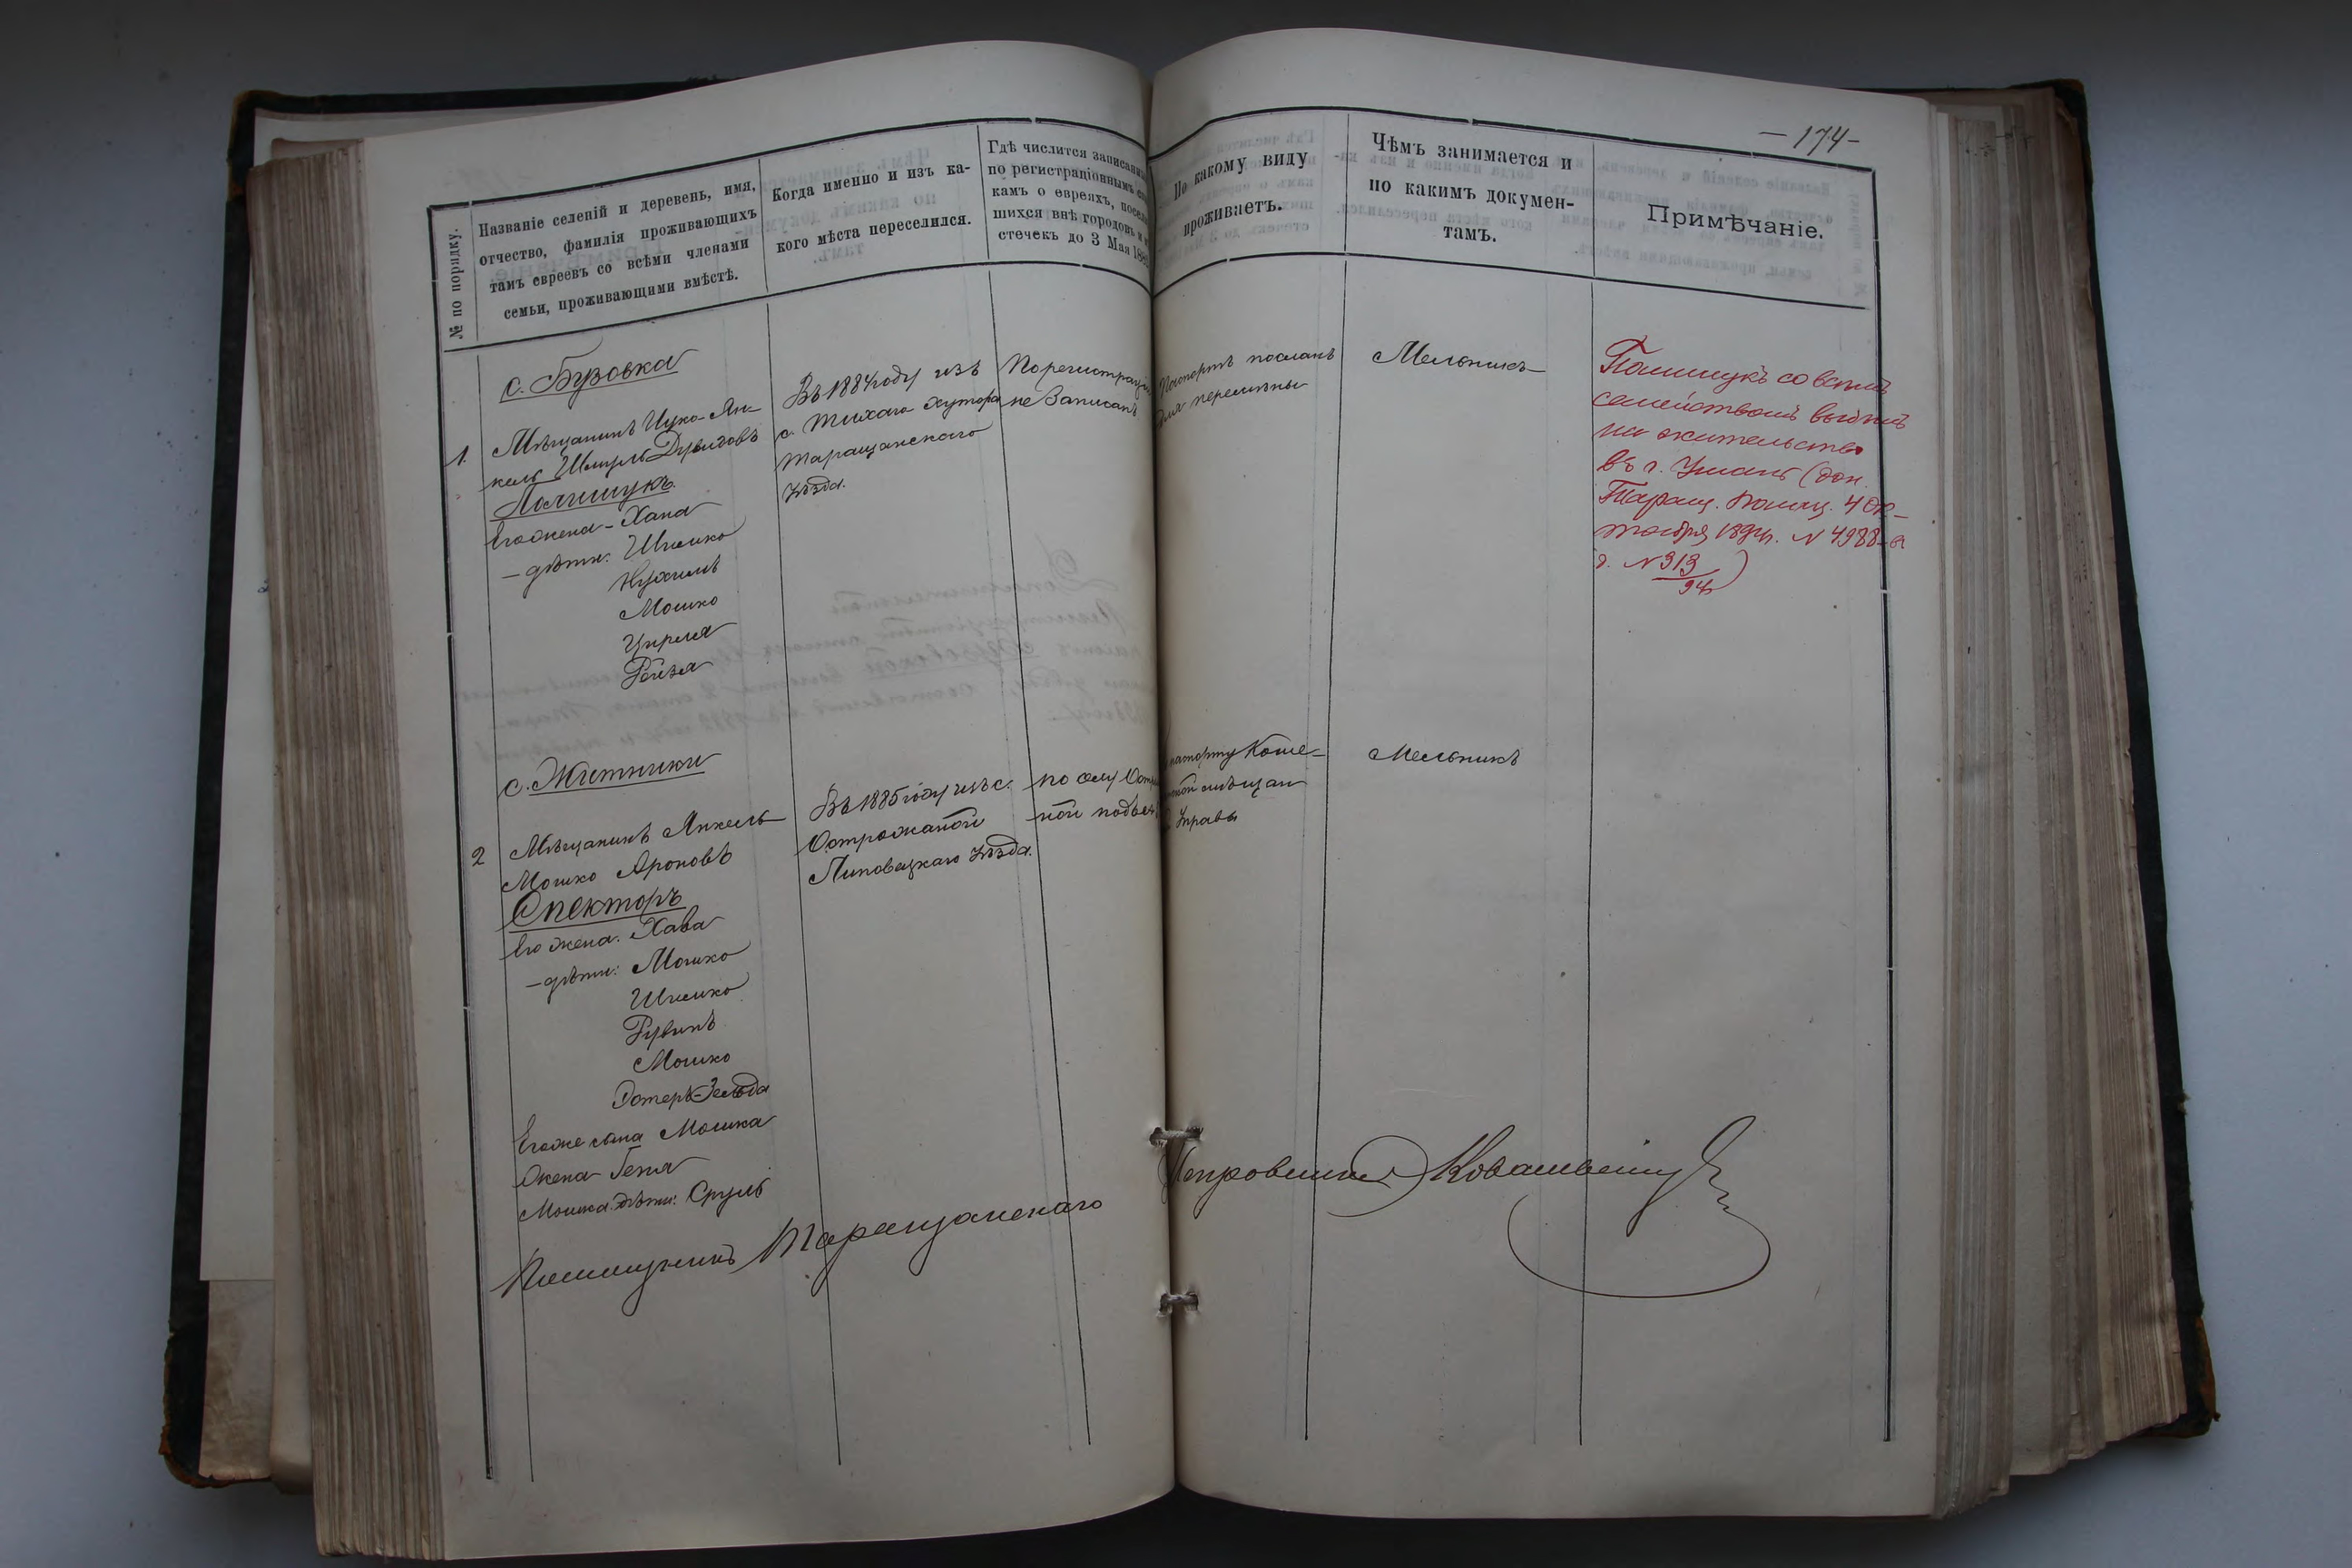 — 174 —
№ по порядку.
Названіе селеній и деревень, имя,
отчество, фамилія проживающихъ
тамъ евреевъ со всѣми членами
семьи, проживающими вмѣстѣ.
Когда именно и изъ ка-
кого мѣста переселился.
Гдѣ числится записанн
по регистраціоннымъ
камъ о евреяхъ, посел
шихся внѣ городовъ и
стечекъ до 3 Мая 188
По какому виду
проживаетъ.
Чѣмъ занимается и
по какимъ докумен-
тамъ.
Примѣчаніе.
с. Бузовка
1. Мѣщанинъ Ицко-Ян-
кель Шмуль Дувидовъ
Полищукъ
Его жена - Хана
— дѣти: Шлемко
Нухимъ
Мошко
Цирля
Рейзя
Въ 1884 году изъ
с. Тихаго Хутора
Таращанскаго
уѣзда.
По регистраціи
не записанъ
Паспортъ посланъ
для перемѣны
Мельникъ
Полищукъ со всѣмъ
семействомъ выбылъ
на жительство
въ г. Умань (дон.
Таращ. Полиц. 4 Ок-
тября 1894 г. № 4988 -
д. № 313
94)
с. Житники
2 Мѣщанинъ Янкель
Мошко Ароновъ
Спекторъ
Его жена. Хава
— дѣти: Мошко
Шлемко
Рувинъ
Мошко
Дочерь Зельда
Его же сына Мошка
жена Геня
Мошка дѣти: Сруль
Въ 1885 году изъ с.
Острожаной
Липовецкаго уѣзда.
по селу Остро
ной
паспорту
мѣщан
Управы
Мельникъ
Помощникъ Таращанскаго
Исправника